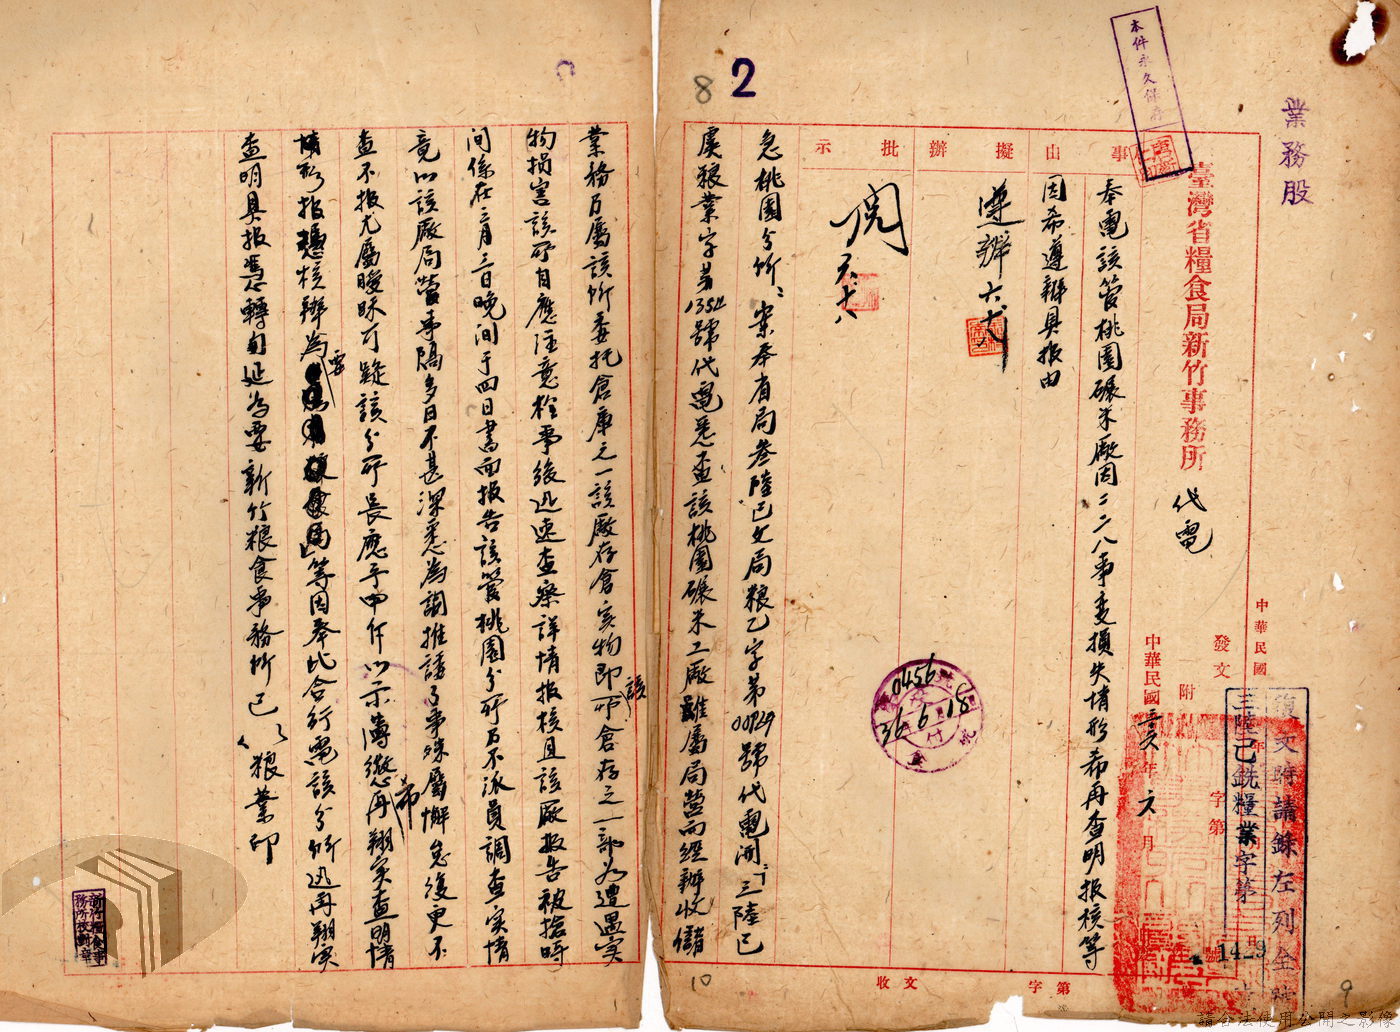 業務股
本件永久保存
臺灣省糧食局新竹事務所 代電
中華民國
發文
附
字第
號
復文時請錄左列全號
三陸己銑糧業字第
1429
中華民國 三六 年 六 月
事由
擬辦
批示
奉電該管桃園碾米廠因二二八事變損失情形希再查明报核等
因希遵辦具报由
遵辦 六 六
閱 六、十八
0456
36.6.18
急桃園分所:案奉省局叁陸已文局粮乙字第00729號代電開:「三陸已
虞粮業字第1352號代電悉查該桃園碾米工廠雖屬局營而經辦收儲
業務乃屬該所委托倉庫之一該廠存倉实物即該所倉存之一部为遭遇实
物损害該所自應注意於事後迅速查察詳情报核且該廠报告被搶時
间係在三月三日晚间于四日書面报告該管桃園分所乃不派員調查实情
竟以該廠局營事隔多日不甚深悉為調推諉了事殊屬懈怠復更不
查不报尤屬曖昧可疑該分所長應予申斥以示薄懲希再翔实查明情
形报核辦為要」等因奉此合行電該分所迅再翔实
查明具报憑轉勿延為要新竹粮食事務所已( )粮業印
收文
字第
號
新竹糧食事務所校對章
2
8
10
9
請合法使用公開之影像